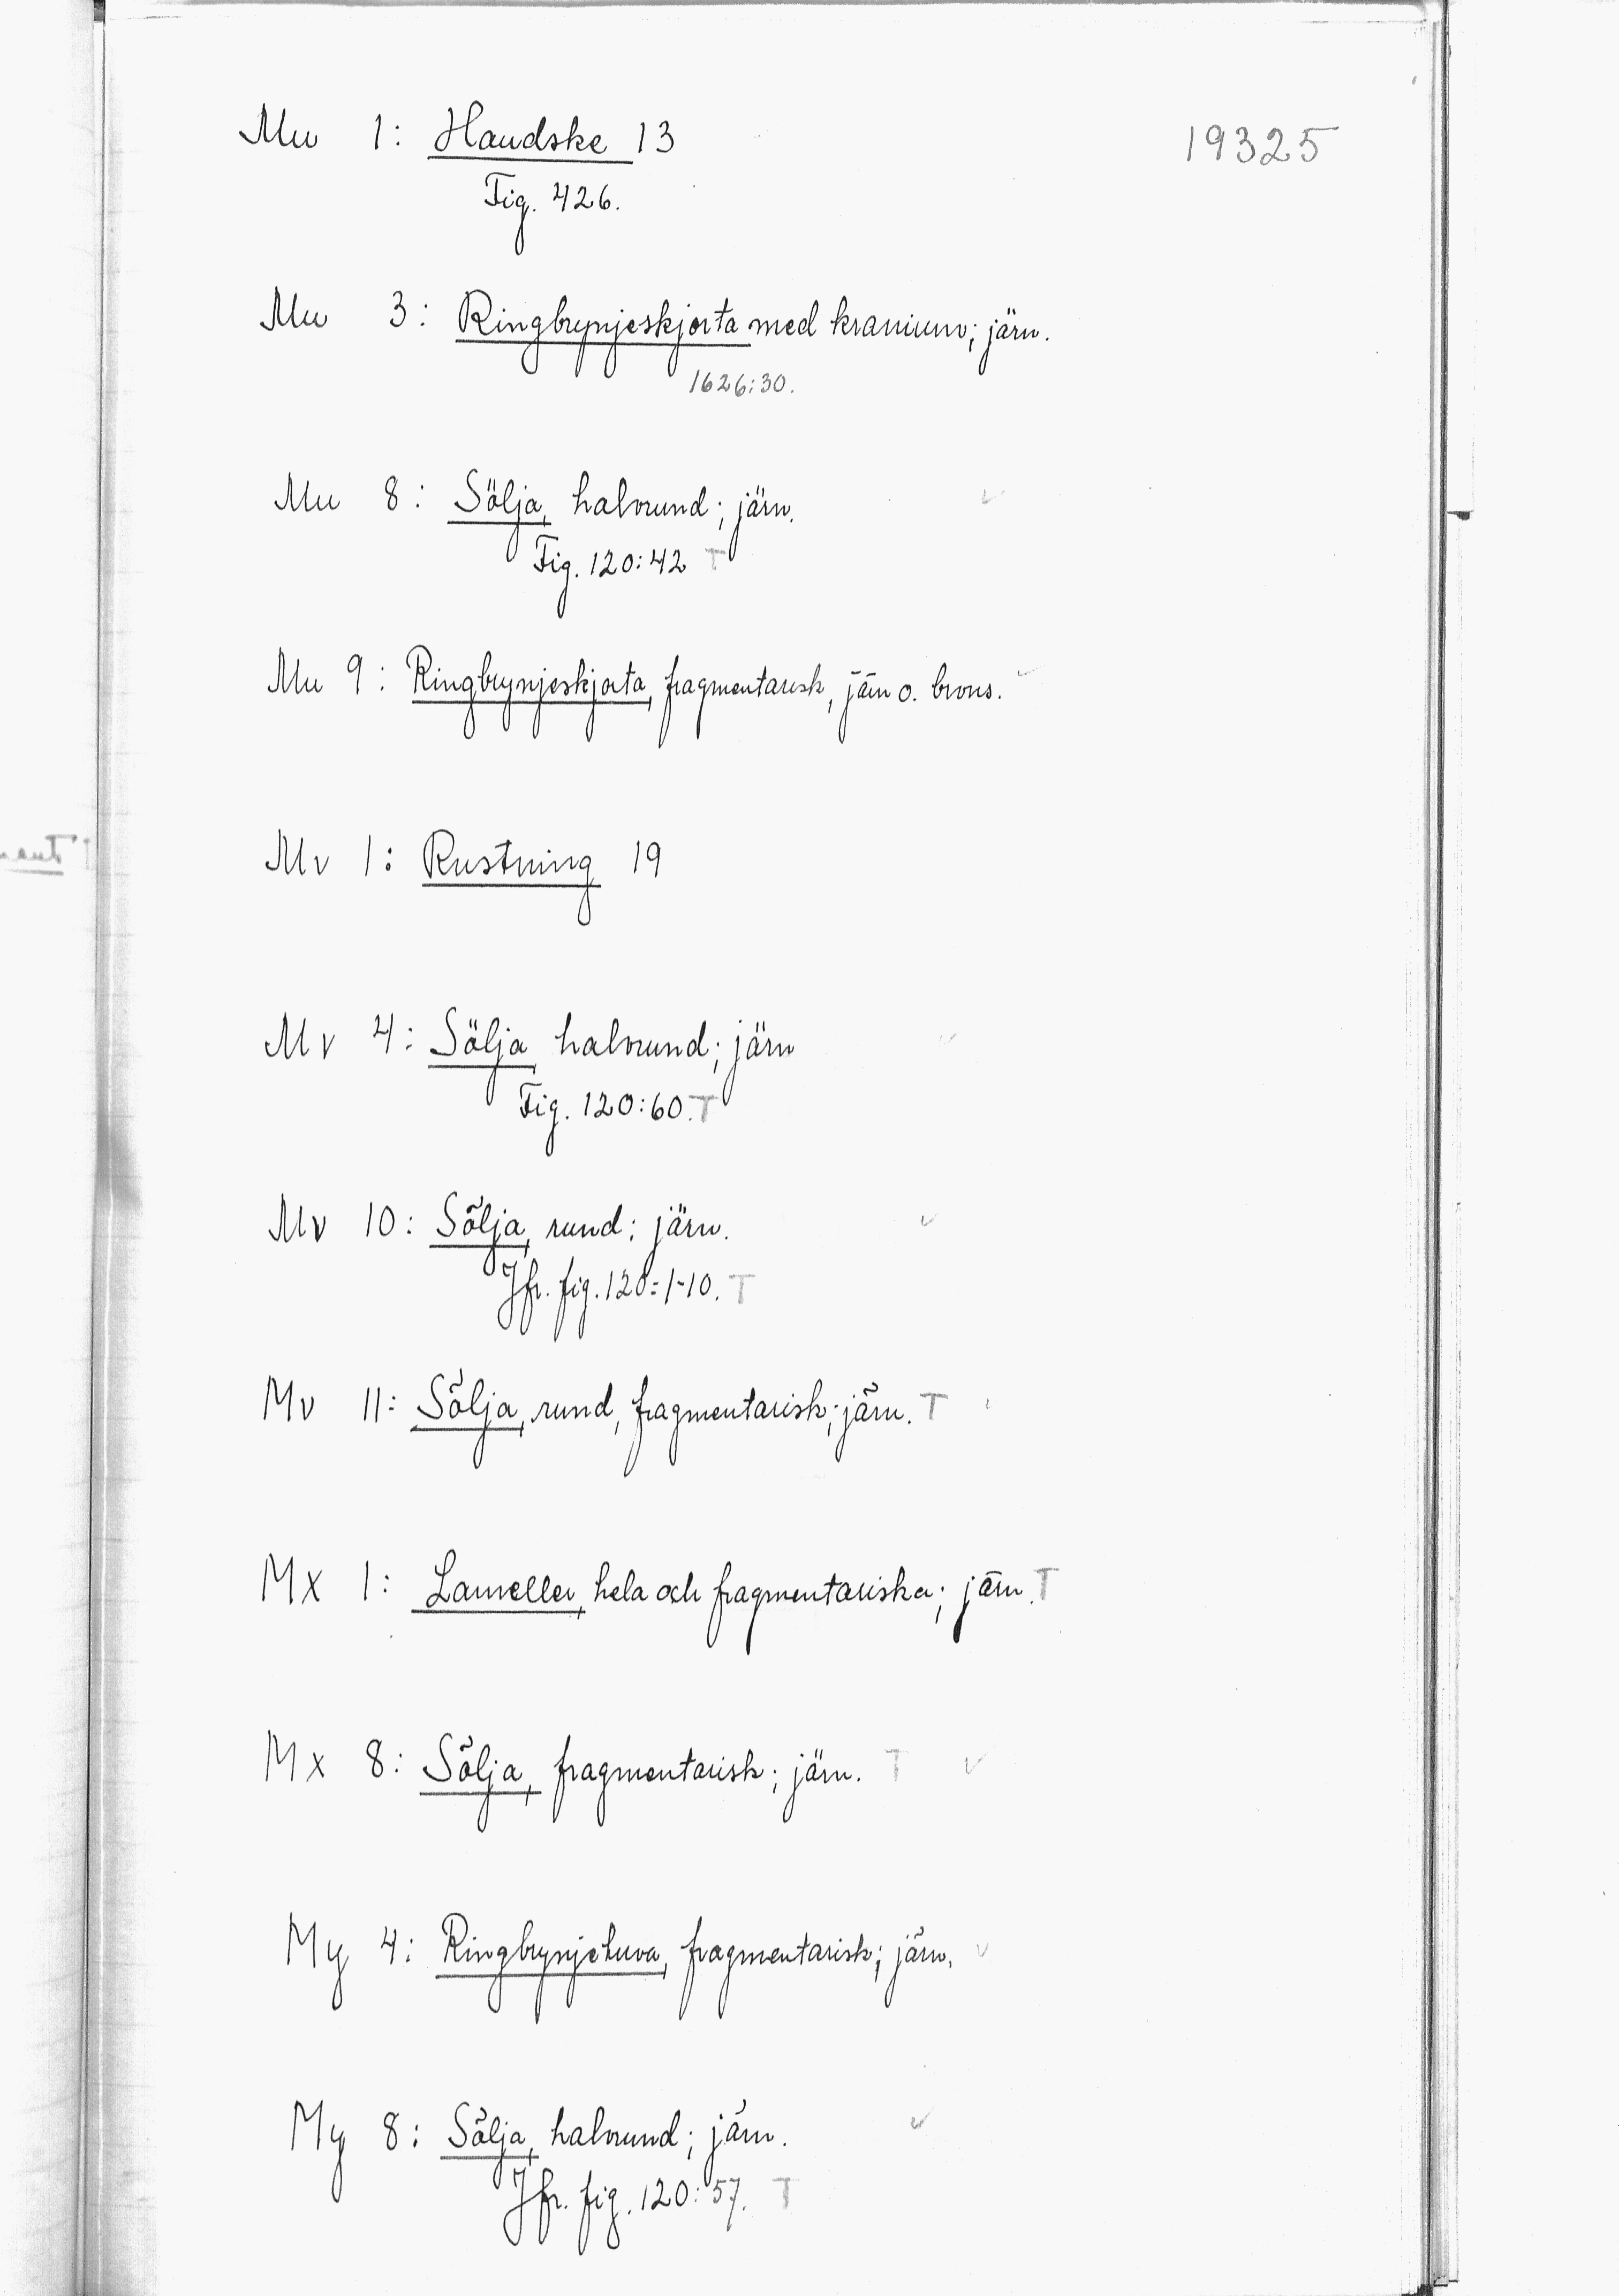 Mu 1: Handske 13 19325
Fig. 426.
Mu 3: Ringbrynjeskjorta med kranium; järn.
1626:30.
Mu 8: Sölja, halvrund; järn.
Fig. 120:42 T
Mu 9: Ringbrynjeskjorta, fragmentarisk, järn o. brons.
Mv 1: Rustning 19
Mv 4: Sölja, halvrund; järn
Fig. 120:60. T
Mv 10: Sölja, rund; järn.
Jfr. fig. 120:1-10. T
Mv 11: Sölja, rund, fragmentarisk; järn. T
Mx 1: Lameller, hela och fragmentariska; järn. T
Mx 8: Sölja, fragmentarisk; järn. T
My 4: Ringbrynjehuva, fragmentarisk; järn.
My 8: Sölja, halvrund; järn.
Jfr. fig. 120:57. T